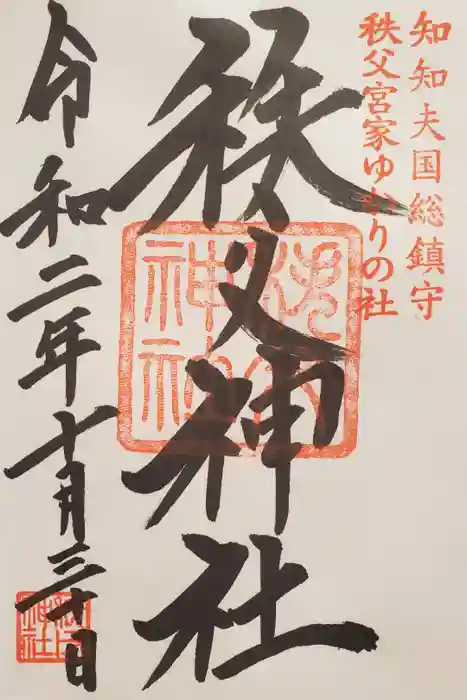 知知夫国総鎮守
秩父宮家ゆかりの社
秩父神社
令和二年十月三十日
秩父神社
神社